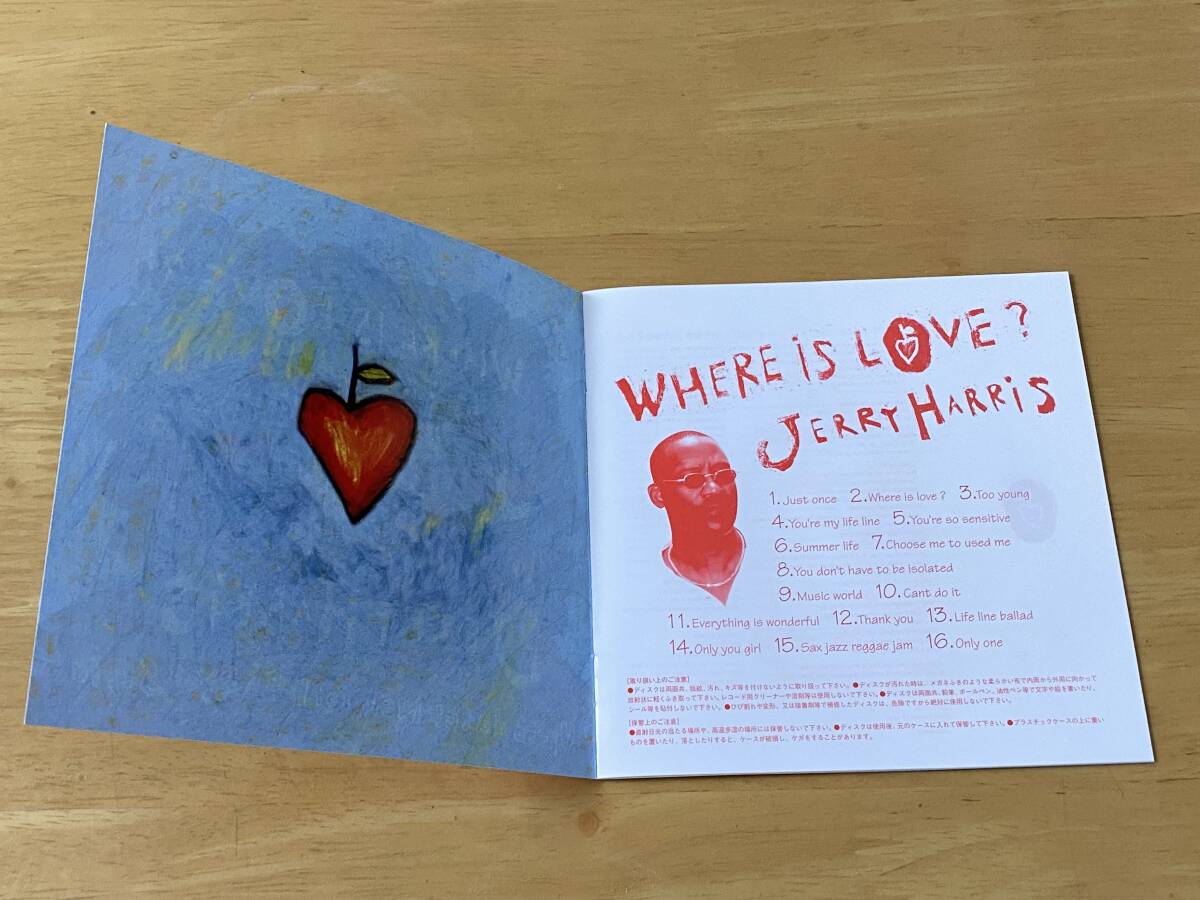 WHERE iS LOVE?
JERRY HARRiS
1.Just once 2.Where is love? 3.Too young
4.You're my life line 5.You're so sensitive
6.Summer life 7.Choose me to used me
8.You don't have to be isolated
9.Music world 10.Cant do it
11.Everything is wonderful 12.Thank you 13.Life line ballad
14.Only you girl 15.Sax jazz reggae jam 16.Only one
[取り扱い上のご注意]
●ディスクは両面共、指紋、汚れ、キズ等を付けないように取り扱って下さい。●ディスクが汚れた時は、メガネふきのような柔らかい布で内周から外周に向かって
放射状に軽くふき取って下さい。レコード用クリーナーや溶剤等は使用しないで下さい。●ディスクは両面共、鉛筆、ボールペン、油性ペン等で文字や絵を書いたり、
シール等を貼付しないで下さい。●ひび割れや変形、又は接着剤等で補修したディスクは、危険ですから絶対に使用しないで下さい。
[保管上のご注意]
●直射日光の当たる場所や、高温多湿の場所には保管しないで下さい。●ディスクは使用後、元のケースに入れて保管して下さい。●プラスチックケースの上に重い
ものを置いたり、落としたりすると、ケースが破損し、ケガをすることがあります。